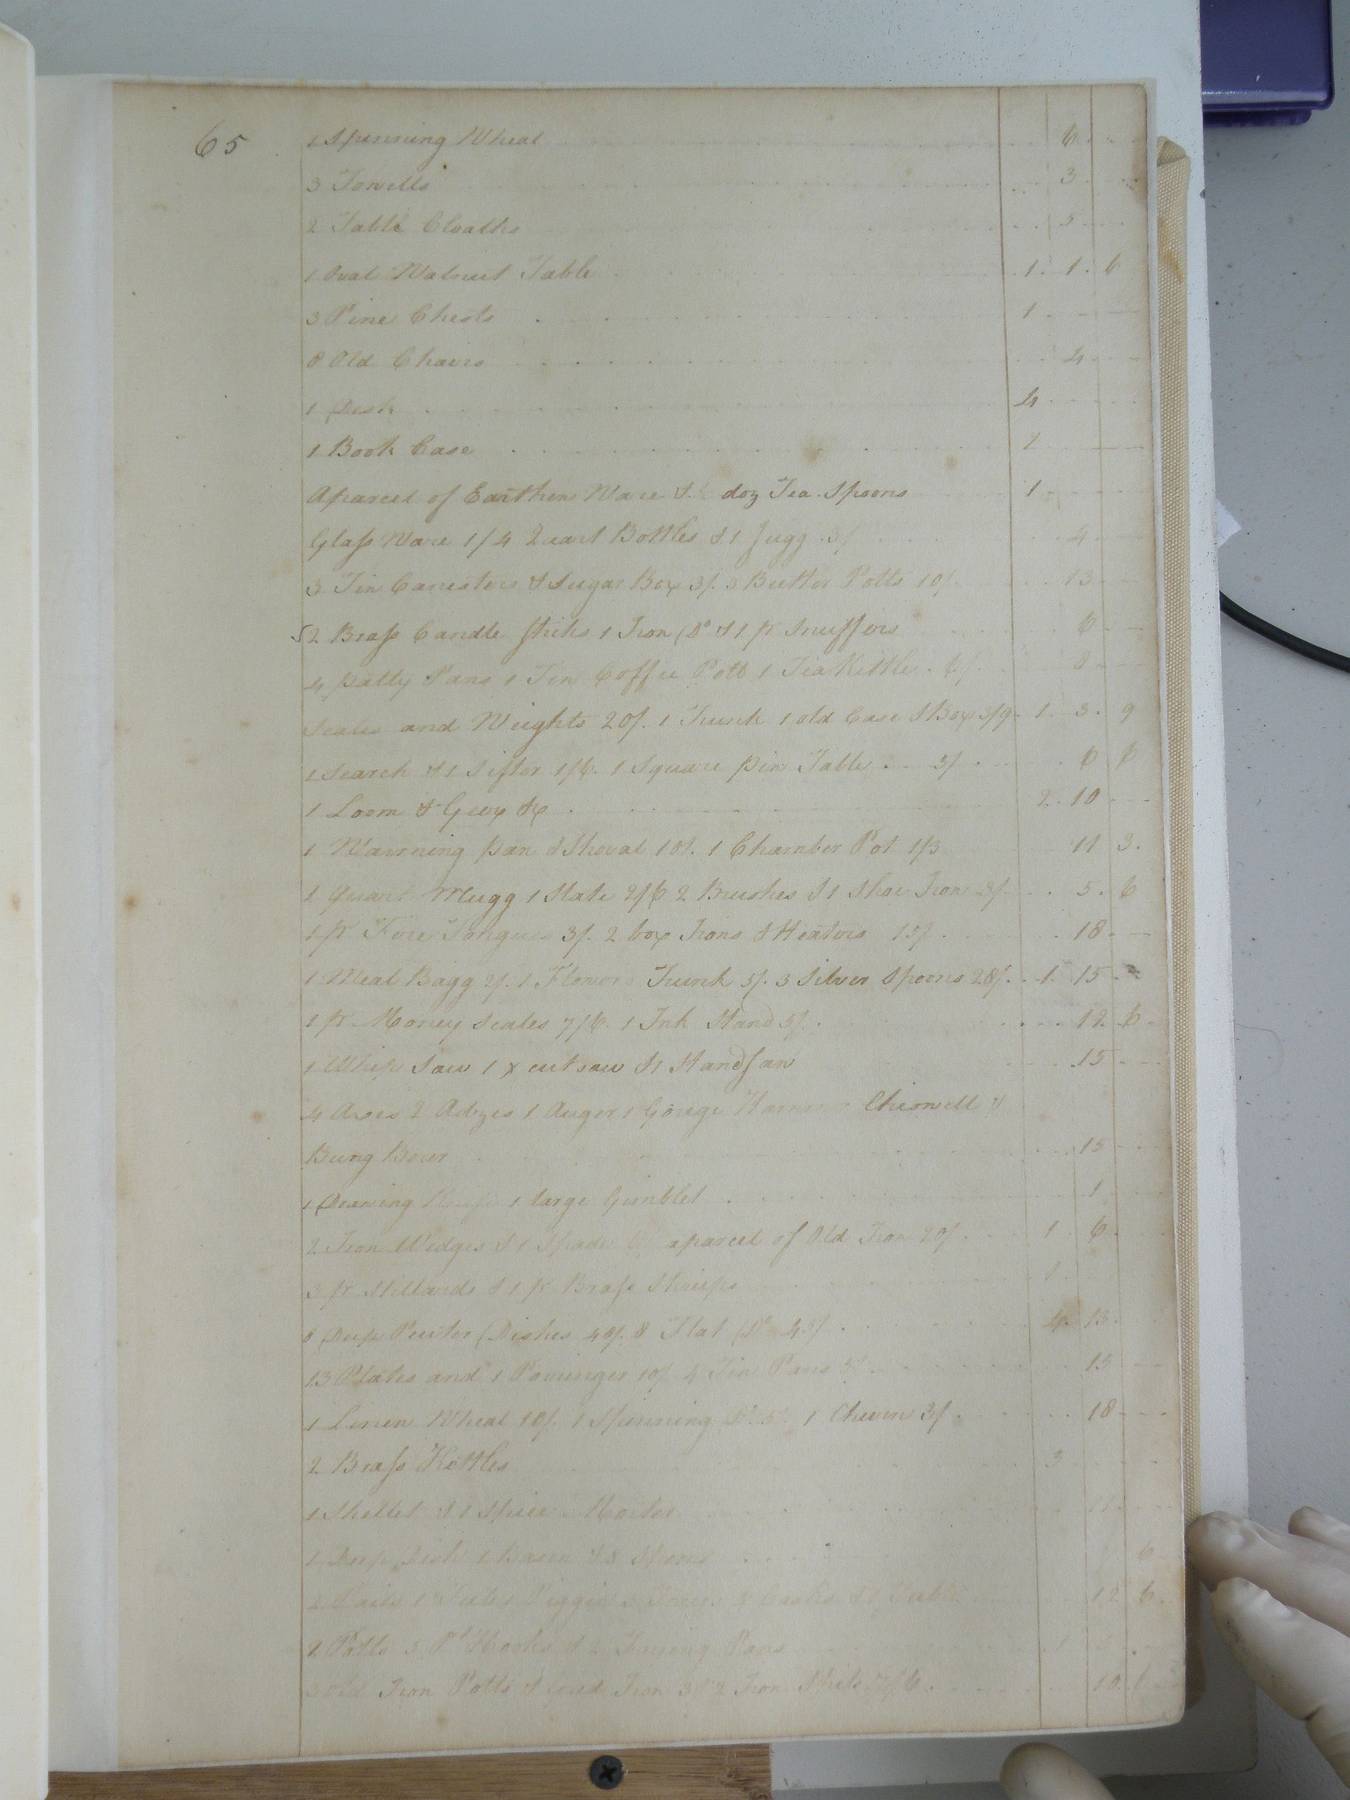 65
1 Spinning Wheal 6
3 Towells 3
2 Table Cloaths 5
1 Oval Walnut Table 1. 1. 6
3 Pine Chests 1
8 Old Chairs 4
1 Desk 4
1 Book Case 2
Aparcel of Earthen Ware & doz Tea Spoons 1
Glass Ware 1/ 4 Quart Bottles & 1 Jugg 3/ 4
3 Tin Canesters & Sugar Box 3/. 3 Butter Potts 10/ 13
2 Brass Candle Sticks 1 Iron Do & 1 pr Snuffers 6
4 patty Pans 1 Tin Coffee Pott 1 Tea Kettle 8
Scales and Weights 20/. 1 Trunk 1 old Case & Box 3/9 1. 3. 9
1 Search & 1 Sifter 1/6. 1 Square pin Table 5/ 6 6
1 Loom & Geer &c 2. 10
1 Warming pan & Shoval 10/. 1 Chamber Pot 1/3 11 3
1 Quart Mugg 1 Slate 2/6 2 Brushes & 1 Shoe Iron 3/ 5. 6
1 pr Fire Tongues 3/. 2 box Irons & Heators 15/ 18
1 Meal Bagg 2/. 1 Flower Trunk 5/. 3 Silver Spoons 28/. 1. 15
1 pr Money Scales 7/6. 1 Ink Stand 5/. 12. 6
1 Whip Saw 1 x cut saw & 1 Handsaw 15
4 Axes 2 Adzes 1 Auger 1 Gouge Hammer Chiswell &
Bung Borer 15
1 Drawing 1 large Gimblet 1
2 Iron Wedges & 1 Spade 6/ aparcel of Old Iron 20/ 1 6
3 pr Stillards & 1 pr Brass Stirrups
8 Deep Pewter Dishes 48/. 8 Flat Do 45/ 4. 13
13 Plates and 1 Porringer 10/ 4 Tin Pans 5/ 15
1 Linen Wheal 10/. 1 Spinning Do 5/. 1 Churn 3/. 18
2 Brass Kettles 3
1 Skellet & 1 Spice Morter
1 Deep Dish 1 Bason & 8 Spoons 6
Pails 1 Piggin Casks 12 6
2 Potts 3 Pt Hooks & 2 Frying Pans
old Iron Potts & Grid Iron 3/ 2 Iron Spits 7/6. 10